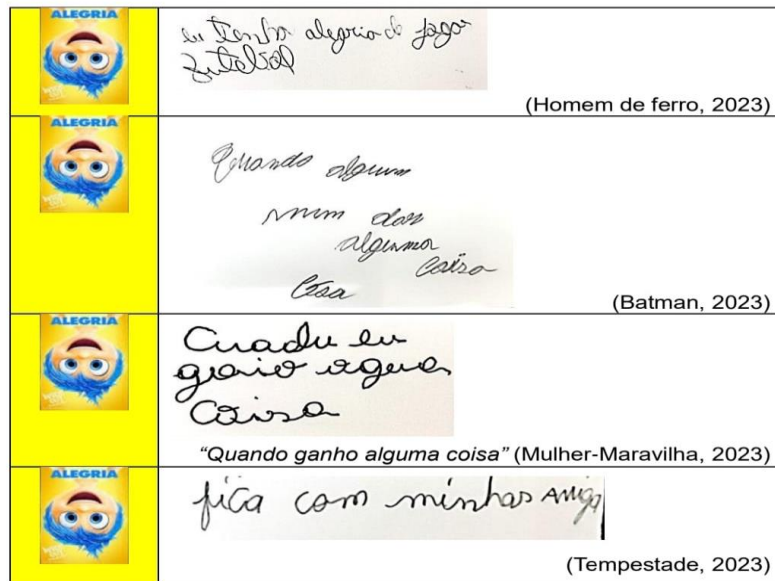 ALEGRIA
eu tenho alegria de jogar
futebol
(Homem de ferro, 2023)
ALEGRIA
Quando algum
mim dar
alguma
coisa
(Batman, 2023)
ALEGRIA
Cuadu eu
coisa
“Quando ganho alguma coisa” (Mulher-Maravilha, 2023)
ALEGRIA
fica com minhas amiga
(Tempestade, 2023)